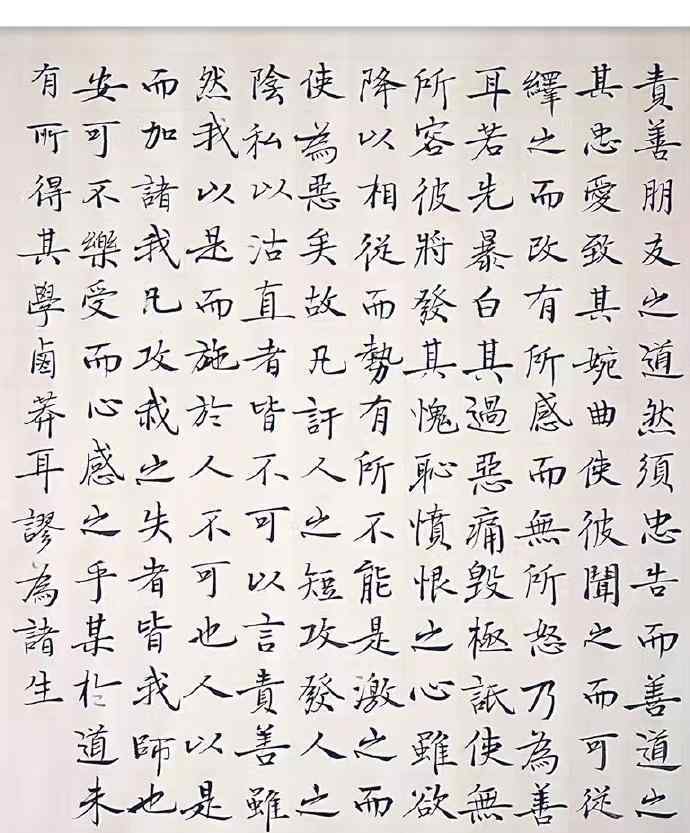 責善朋友之道然須忠告而善道之
其忠愛致其婉曲使彼聞之而可從
繹之而改有所感而無所怒乃為善
耳若先暴白其過惡痛毀極詆使無
所容彼將發其愧恥憤恨之心雖欲
降以相從而勢有所不能是激之而
使為惡矣故凡訐人之短攻發人之
陰私以沽直者皆不可以言責善雖
然我以是而施於人不可也人以是
而加諸我凡攻我之失者皆我師也
安可不樂受而心感之乎某於道未
有所得其學鹵莽耳謬為諸生